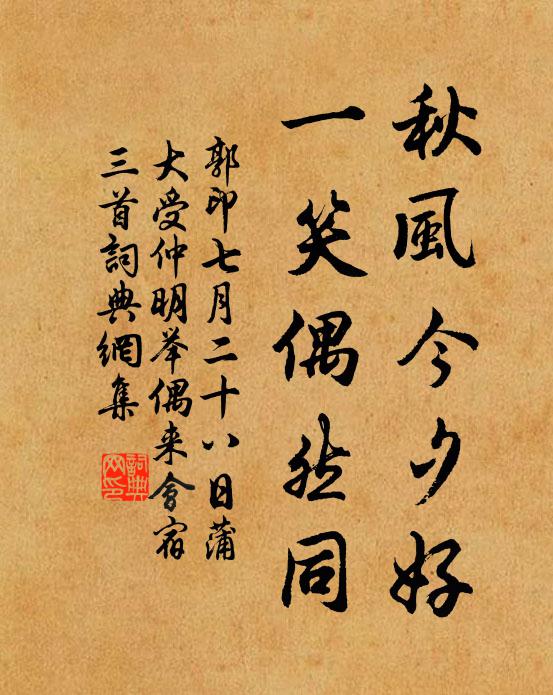 秋風今夕好
一笑偶然同
郭印七月二十八日蒲
大受仲明举偶来會宿
三首詞典網集
詞典
网印